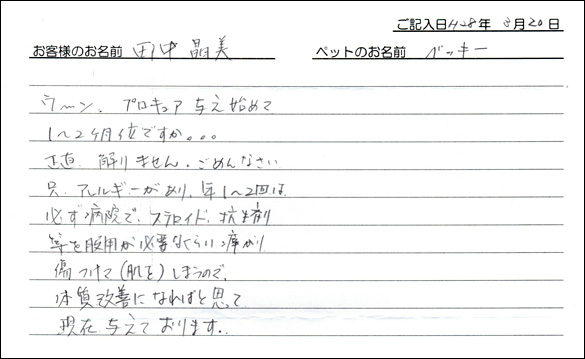 ご記入日H28年 3月20日
お客様のお名前 田中 晶美 ペットのお名前 ベッキー
ウ〜ン、プロキュア与え始めて
1〜2ヶ月位ですか。。。
正直、解りません。ごめんなさい
只、アレルギーがあり、年1〜2回は
必ず病院で、ステロイド、抗生剤
等を服用が必要なくらい痒がり
傷つけて(肌を)しまうので、
体質改善になればと思って
現在 与えております。